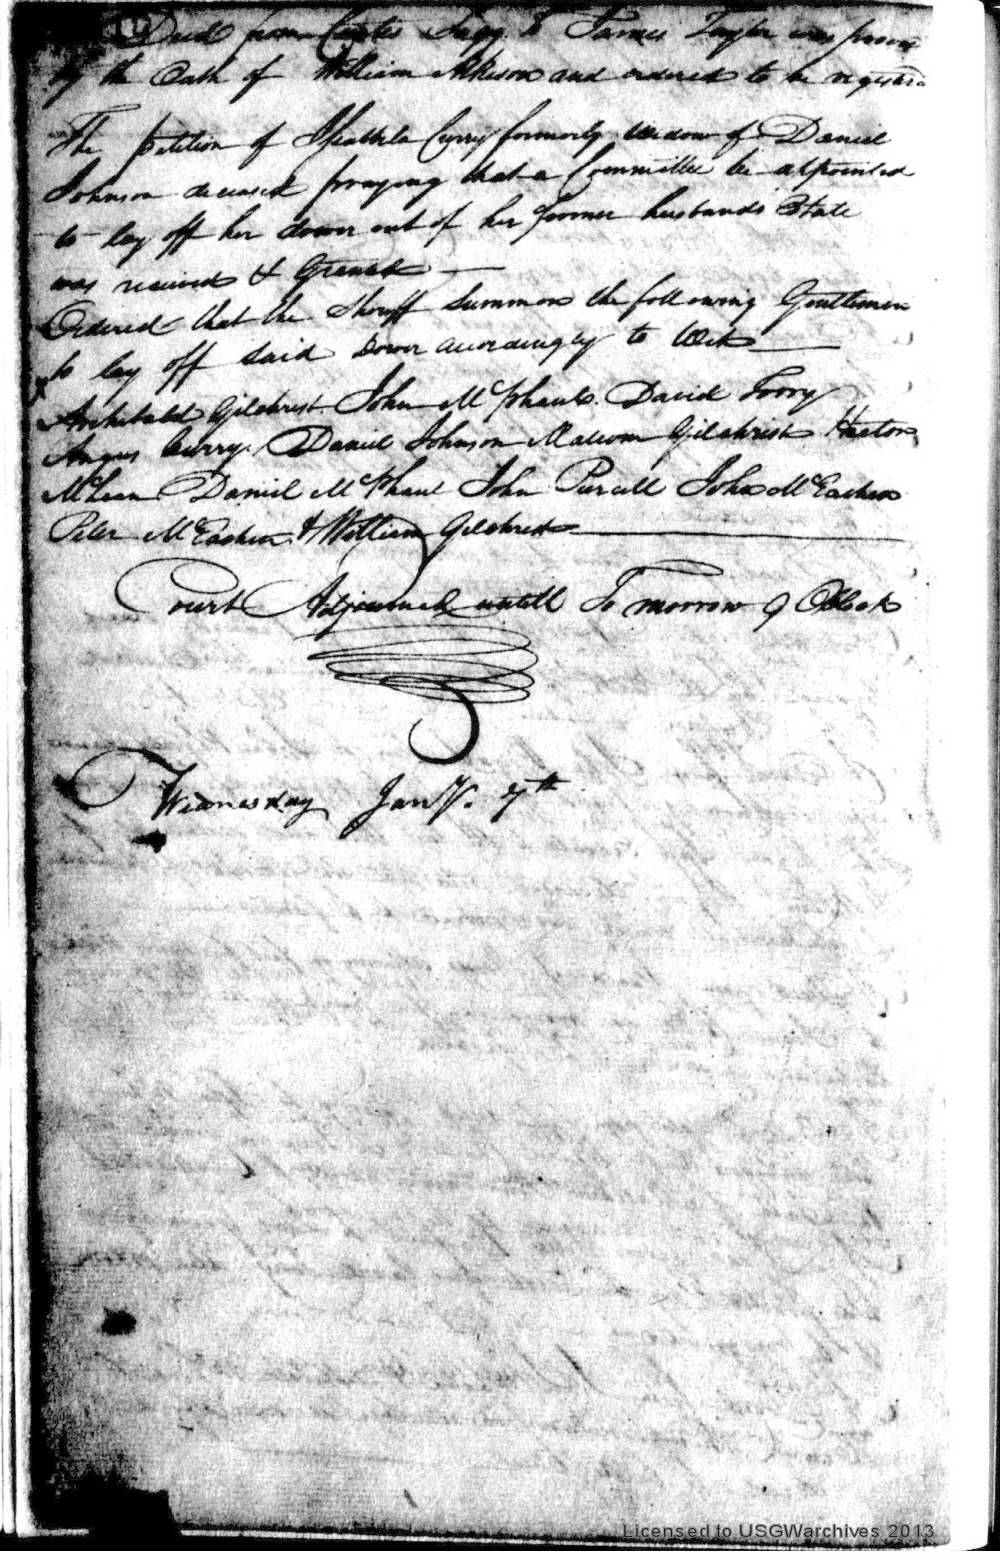 Deed from to James Taylor was proven
by the Oath of William and ordered to be registerd
The petition of Curry formerly Widow of Daniel
Johnson deceased praying that a Committee be appointed
to lay off her dower out of her former husbands Estate
was received & Granted
Ordered that the Sheriff Summon the following Gentlemen
to lay off Said Dower accordingly to Wit
Archibald Gilchrist John McPhaul David Torry
Angus Curry Daniel Johnson Malcom Gilchrist Hector
McLean Daniel McPhaul John Purcell John McEachen
Peter McEachen & William Gilchrist
Court Adjourned untill To morrow 9 OClock
Wednesday Jany. 7th
Licensed to USGWarchives 2013